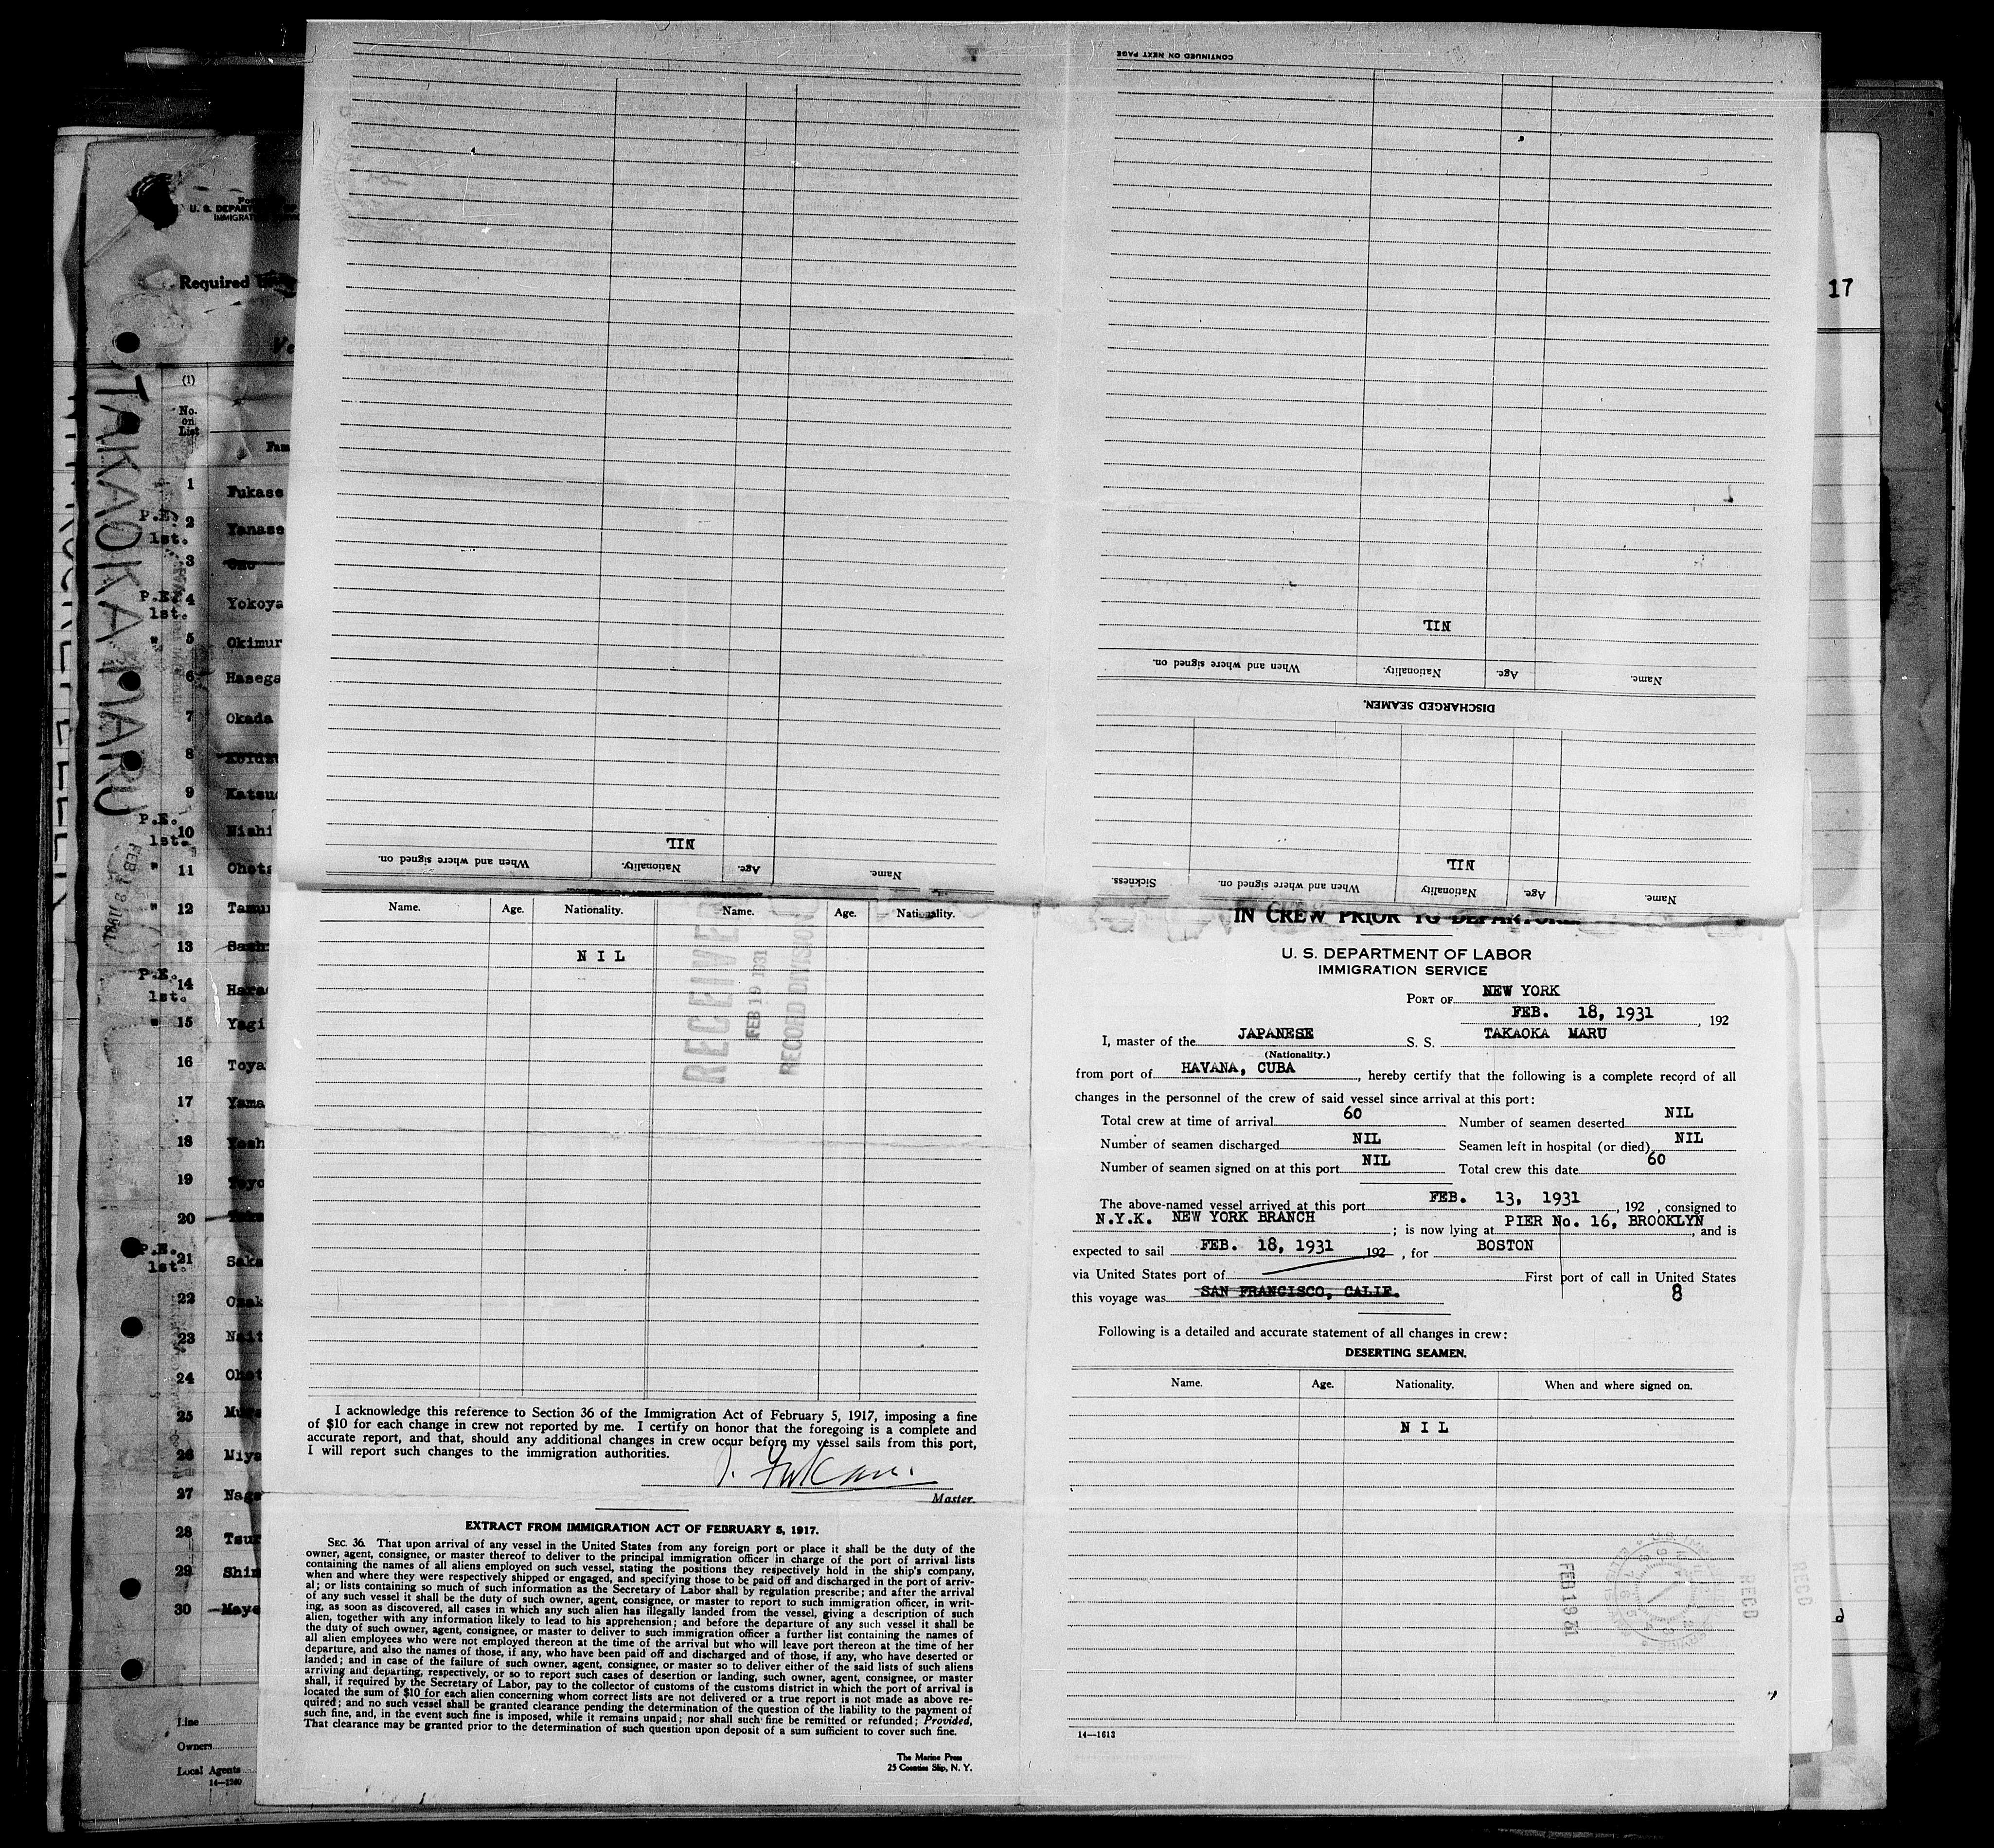 CONTINUED ON NEXT PAGE
NIL
Name. Age. Nationality. When and where signed on.
DISCHARGED SEAMEN.
NIL
Name. Age. Nationality When and where signed on. Sickness.
NIL
Name. Age. Nationality. When and where signed on.
17
U. S. DEPART
Required
(1)
No.
on
List
Fam
TAKAOKA MARU
1 Fukase
P.E. 1st. 2 Yanase
3
P.E. 1st. 4 Yokoya
" 5 Okimur
6 Hasega
7 Okada
8
9 Katsu
P.E. 1st. 10 Nishi
" 11 Ohota
" 12 Tamu
13 Sash
P.E. 1st. 14 Hara
" 15 Yagi
16 Toya
17 Yama
18 Yosh
19 Toyo
20
P.E. 1st. 21 Saka
22
23 Nait
24
25
26 Miya
27 Naga
28 Tsur
29 Shim
30 Maye
Line
Owners
Local Agents
14—1240
Name. Age. Nationality. Name. Age. Nationality.
NIL
RECEIVED
FEB 19 1931
RECORD DIVISION
I acknowledge this reference to Section 36 of the Immigration Act of February 5, 1917, imposing a fine
of $10 for each change in crew not reported by me. I certify on honor that the foregoing is a complete and
accurate report, and that, should any additional changes in crew occur before my vessel sails from this port,
I will report such changes to the immigration authorities.
Master.
EXTRACT FROM IMMIGRATION ACT OF FEBRUARY 5, 1917.
SEC. 36. That upon arrival of any vessel in the United States from any foreign port or place it shall be the duty of the
owner, agent, consignee, or master thereof to deliver to the principal immigration officer in charge of the port of arrival lists
containing the names of all aliens employed on such vessel, stating the positions they respectively hold in the ship's company,
when and where they were respectively shipped or engaged, and specifying those to be paid off and discharged in the port of arriv-
al; or lists containing so much of such information as the Secretary of Labor shall by regulation prescribe; and after the arrival
of any such vessel it shall be the duty of such owner, agent, consignee, or master to report to such immigration officer, in writ-
ing, as soon as discovered, all cases in which any such alien has illegally landed from the vessel, giving a description of such
alien, together with any information likely to lead to his apprehension; and before the departure of any such vessel it shall be
the duty of such owner, agent, consignee, or master to deliver to such immigration officer a further list containing the names of
all alien employees who were not employed thereon at the time of the arrival but who will leave port thereon at the time of her
departure, and also the names of those, if any, who have been paid off and discharged and of those, if any, who have deserted or
landed; and in case of the failure of such owner, agent, consignee, or master so to deliver either of the said lists of such aliens
arriving and departing, respectively, or so to report such cases of desertion or landing, such owner, agent, consignee, or master
shall, if required by the Secretary of Labor, pay to the collector of customs of the customs district in which the port of arrival is
located the sum of $10 for each alien concerning whom correct lists are not delivered or a true report is not made as above re-
quired; and no such vessel shall be granted clearance pending the determination of the question of the liability to the payment of
such fine, and, in the event such fine is imposed, while it remains unpaid; nor shall such fine be remitted or refunded; Provided,
That clearance may be granted prior to the determination of such question upon deposit of a sum sufficient to cover such fine.
The Marine Press
25 Coenties Slip, N. Y.
IN CREW PRIOR TO DEPARTURE
U. S. DEPARTMENT OF LABOR
IMMIGRATION SERVICE
PORT OF NEW YORK
FEB. 18, 1931, 192
I, master of the JAPANESE S. S. TAKAOKA MARU
(Nationality.)
from port of HAVANA, CUBA, hereby certify that the following is a complete record of all
changes in the personnel of the crew of said vessel since arrival at this port:
Total crew at time of arrival 60 Number of seamen deserted NIL
Number of seamen discharged NIL Seamen left in hospital (or died) NIL
Number of seamen signed on at this port NIL Total crew this date 60
The above-named vessel arrived at this port FEB. 13, 1931, 192 , consigned to
N.Y.K. NEW YORK BRANCH; is now lying at PIER No. 16, BROOKLYN, and is
expected to sail FEB. 18, 1931 192 , for BOSTON
via United States port of First port of call in United States
this voyage was SAN FRANCISCO, CALIF. 8
Following is a detailed and accurate statement of all changes in crew:
DESERTING SEAMEN.
Name. Age. Nationality. When and where signed on.
NIL
FEB 19 31
REC'D
14—1613